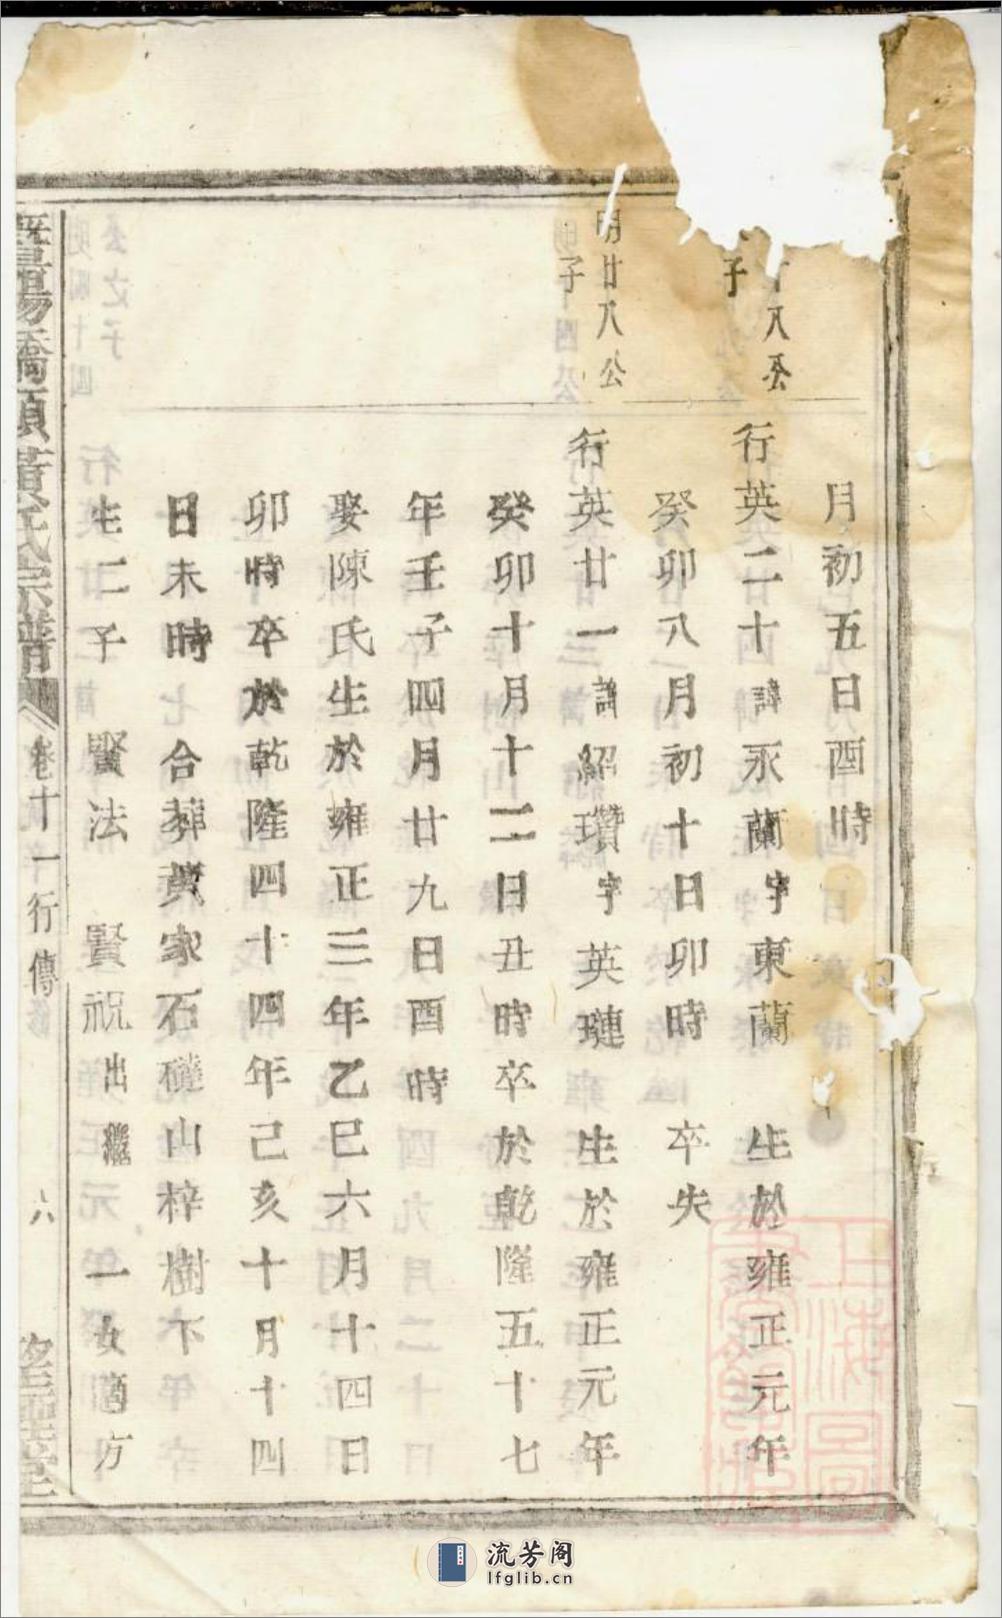 月初五日酉時
八公
子
行英二十諱永蘭字東蘭 生於雍正元年
癸卯八月初十日卯時 卒失
明廿八公
子
行英廿一諱紹瓚字英璉 生於雍正元年
癸卯十月十二日丑時卒於乾隆五十七
年壬子四月廿九日酉時
娶陳氏生於雍正三年乙巳六月十四日
卯時卒於乾隆四十四年己亥十月十四
日未時 合葬黃家石磋山梓樹下
生二子 賢法 賢祝出繼 一女適方
暨陽橋頭黃氏宗譜 卷十一行傳 六
上海圖書館藏
流芳阁
lfglib.cn